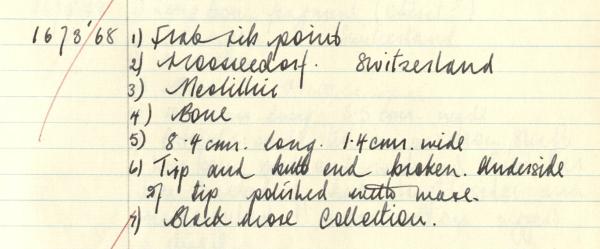 1673'68 1) Frab rib point
2) Moosseedorf. Switzerland
3) Neolithic
4) Bone
5) 8.4 cm. long. 1.4 cm. wide
6) Tip and butt end broken. Underside
of tip polished with mare.
7) Blackmore Collection.